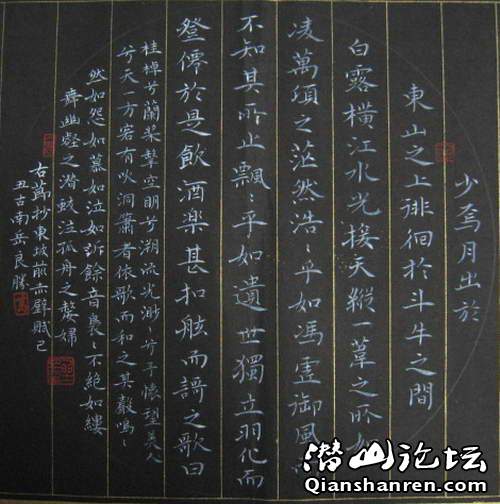 少焉月出於
東山之上徘徊於斗牛之間
白露橫江水光接天縱一葦之所如
凌萬頃之茫然浩〻乎如馮虛御風
不知其所止飄〻乎如遺世獨立羽化而
登僊於是飲酒楽甚扣舷而謌之歌曰
桂棹兮蘭槳擊空明兮溯流光渺〻兮予懷望美人
兮天一方客有吹洞簫者依歌而和之其聲鳴〻
然如怨如慕如泣如訴餘音裊〻不絕如縷
舞幽壑之潛蛟泣孤舟之嫠婦
抄東坡前赤壁賦己
丑古南岳良勝
潜山论坛
Qianshanren.com